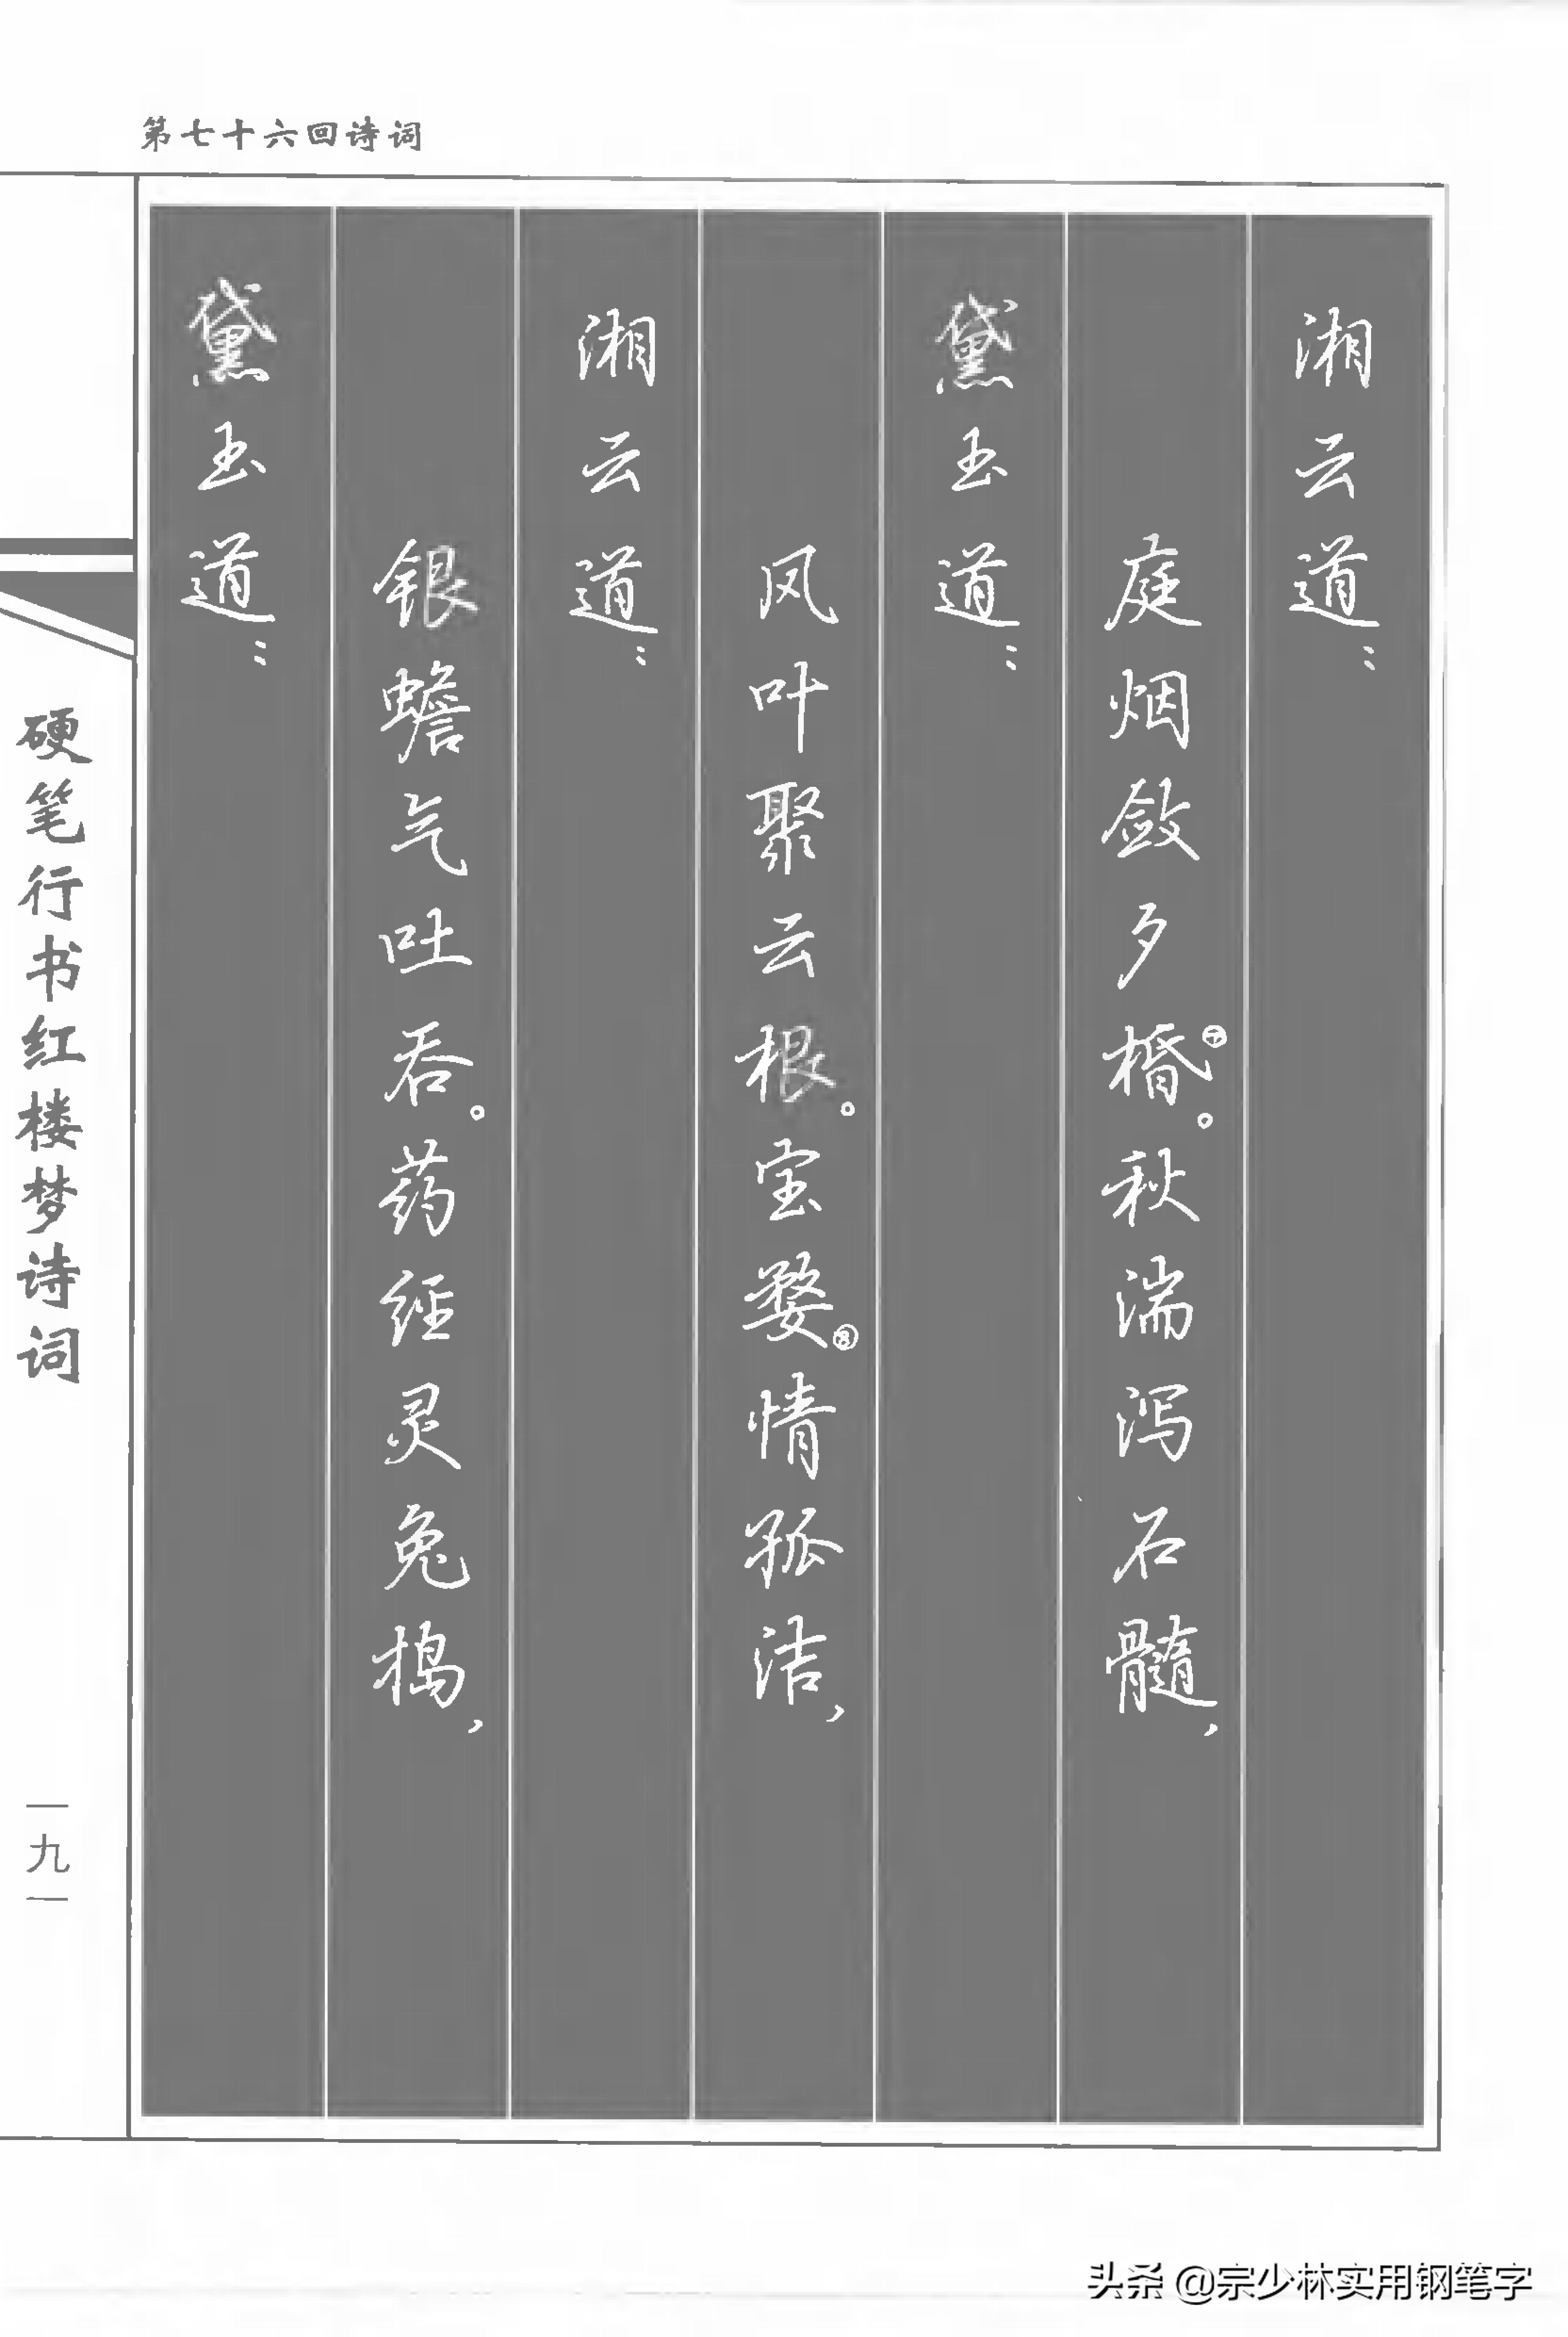 第七十六回诗词
湘云道：
庭烟敛夕棔⑦。秋湍泻石髓，
黛玉道：
风叶聚云根。宝婺⑧情孤洁，
湘云道：
银蟾气吐吞。药经灵兔捣，
黛玉道：
硬笔行书红楼梦诗词
一九一
头条 @宗少林实用钢笔字